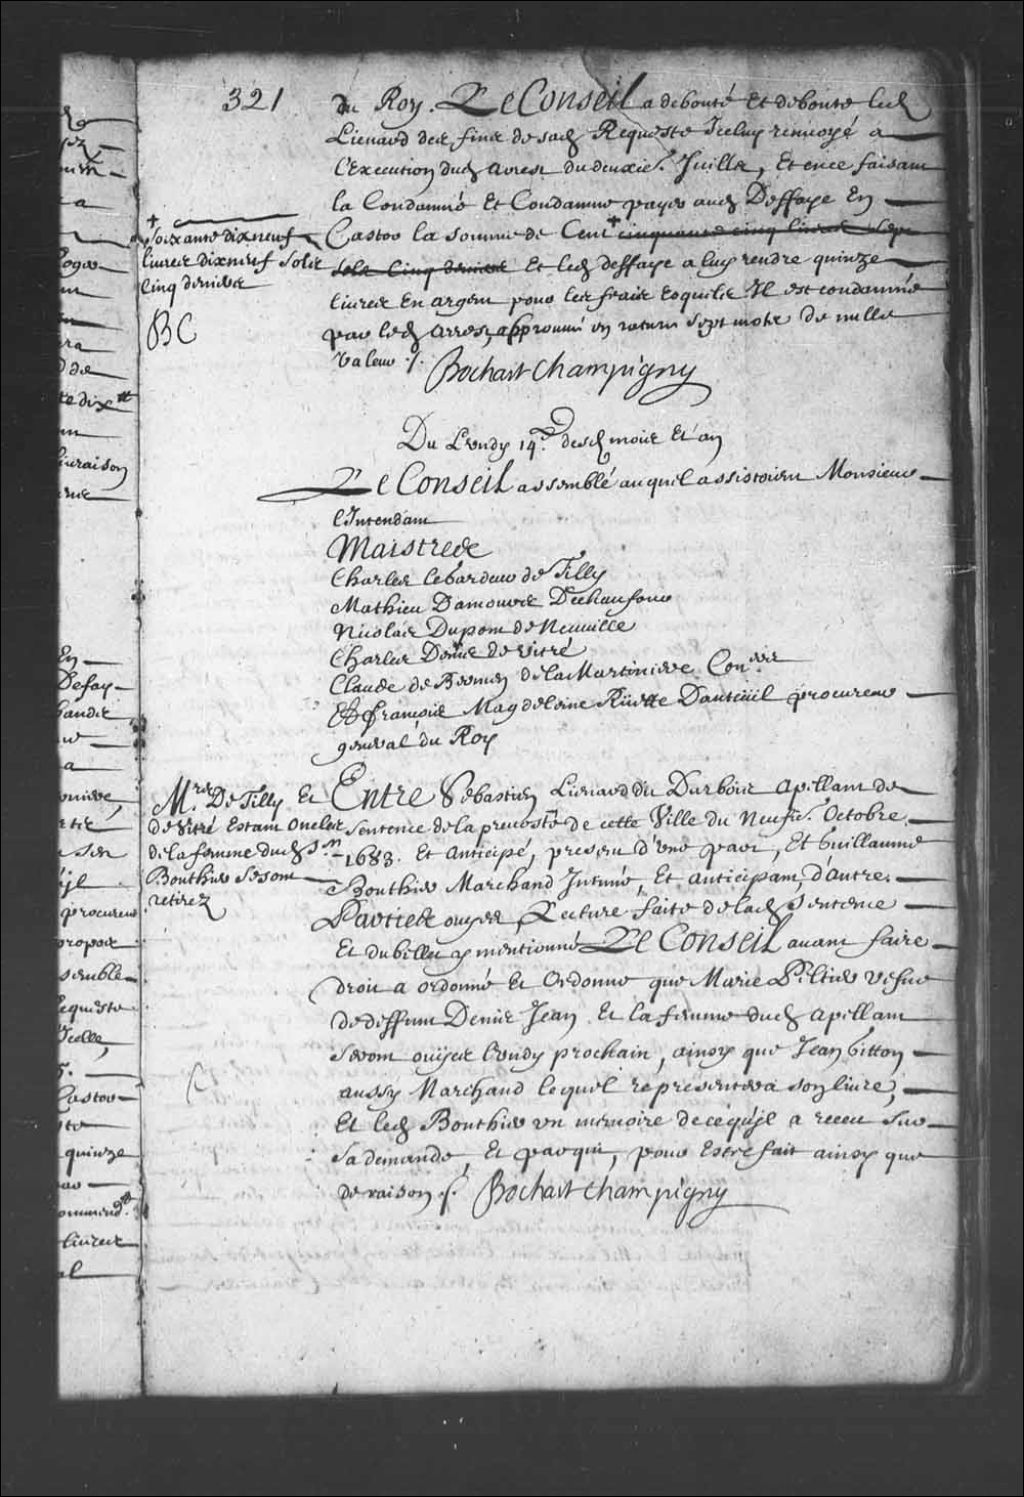 321
du Roy. Le Conseil a debouté et deboute led
Lienard des fins de sad Requeste Iceluy renvoyé a
l'Execution dud arrest du deuxie. Juillet, Et en ce faisant
la Condamné Et Condamne payer aud Deffaye En
Castor la somme de Cent + cinquante cinq livres sept
sols cinq deniers Et led deffaye a luy rendre quinze
livres En argent pour les frais esquels Il est condamné
par led Arrest, approuvé en rature sept mots de nulle
valeur ./. Bochart Champigny
+
soixante dix neuf
livres dix neuf sols
cinq deniers
BC
Du Lundy 14e. desd mois Et an
Le Conseil assemblé auquel assistoient Monsieur
l'Intendant
Maistres
Charles Legardeur de Tilly
Mathieu Damours Deschaufour
Nicolas Dupont de Neuville
Charles Denis de Vitré
Claude de Bermen de la Martiniere Coners
Et François Magdeleine Rüette Dauteuil procureur
general du Roy
Mrs. De Tilly Et
de Vitré Estant Oncles
de la femme dud Sr.
Bouthier se sont
retirez
Entre Sebastien Lienard dit Durbois apellant de
sentence de la prevosté de cette Ville du Neufie. Octobre
1688. Et Anticipé, present d'une part, Et Guillaume
Bouthier Marchand Intimé, Et anticipant, d'autre.
Parties ouyes, Lecture faite de lad sentence
Et du billet y mentionné Le Conseil avant faire
droit a ordonné Et Ordonne que Marie Peltier vefve
de deffunt Denis Jean Et la femme dud apellant
seront ouyes lundy prochain, ainsy que Jean Gitton
aussy Marchand lequel representera son livre,
Et led Bouthier un memoire de ce qu'il a receu sur
sa demande, Et par qui, pour Estre fait ainsy que
de raison ./. Bochart Champigny